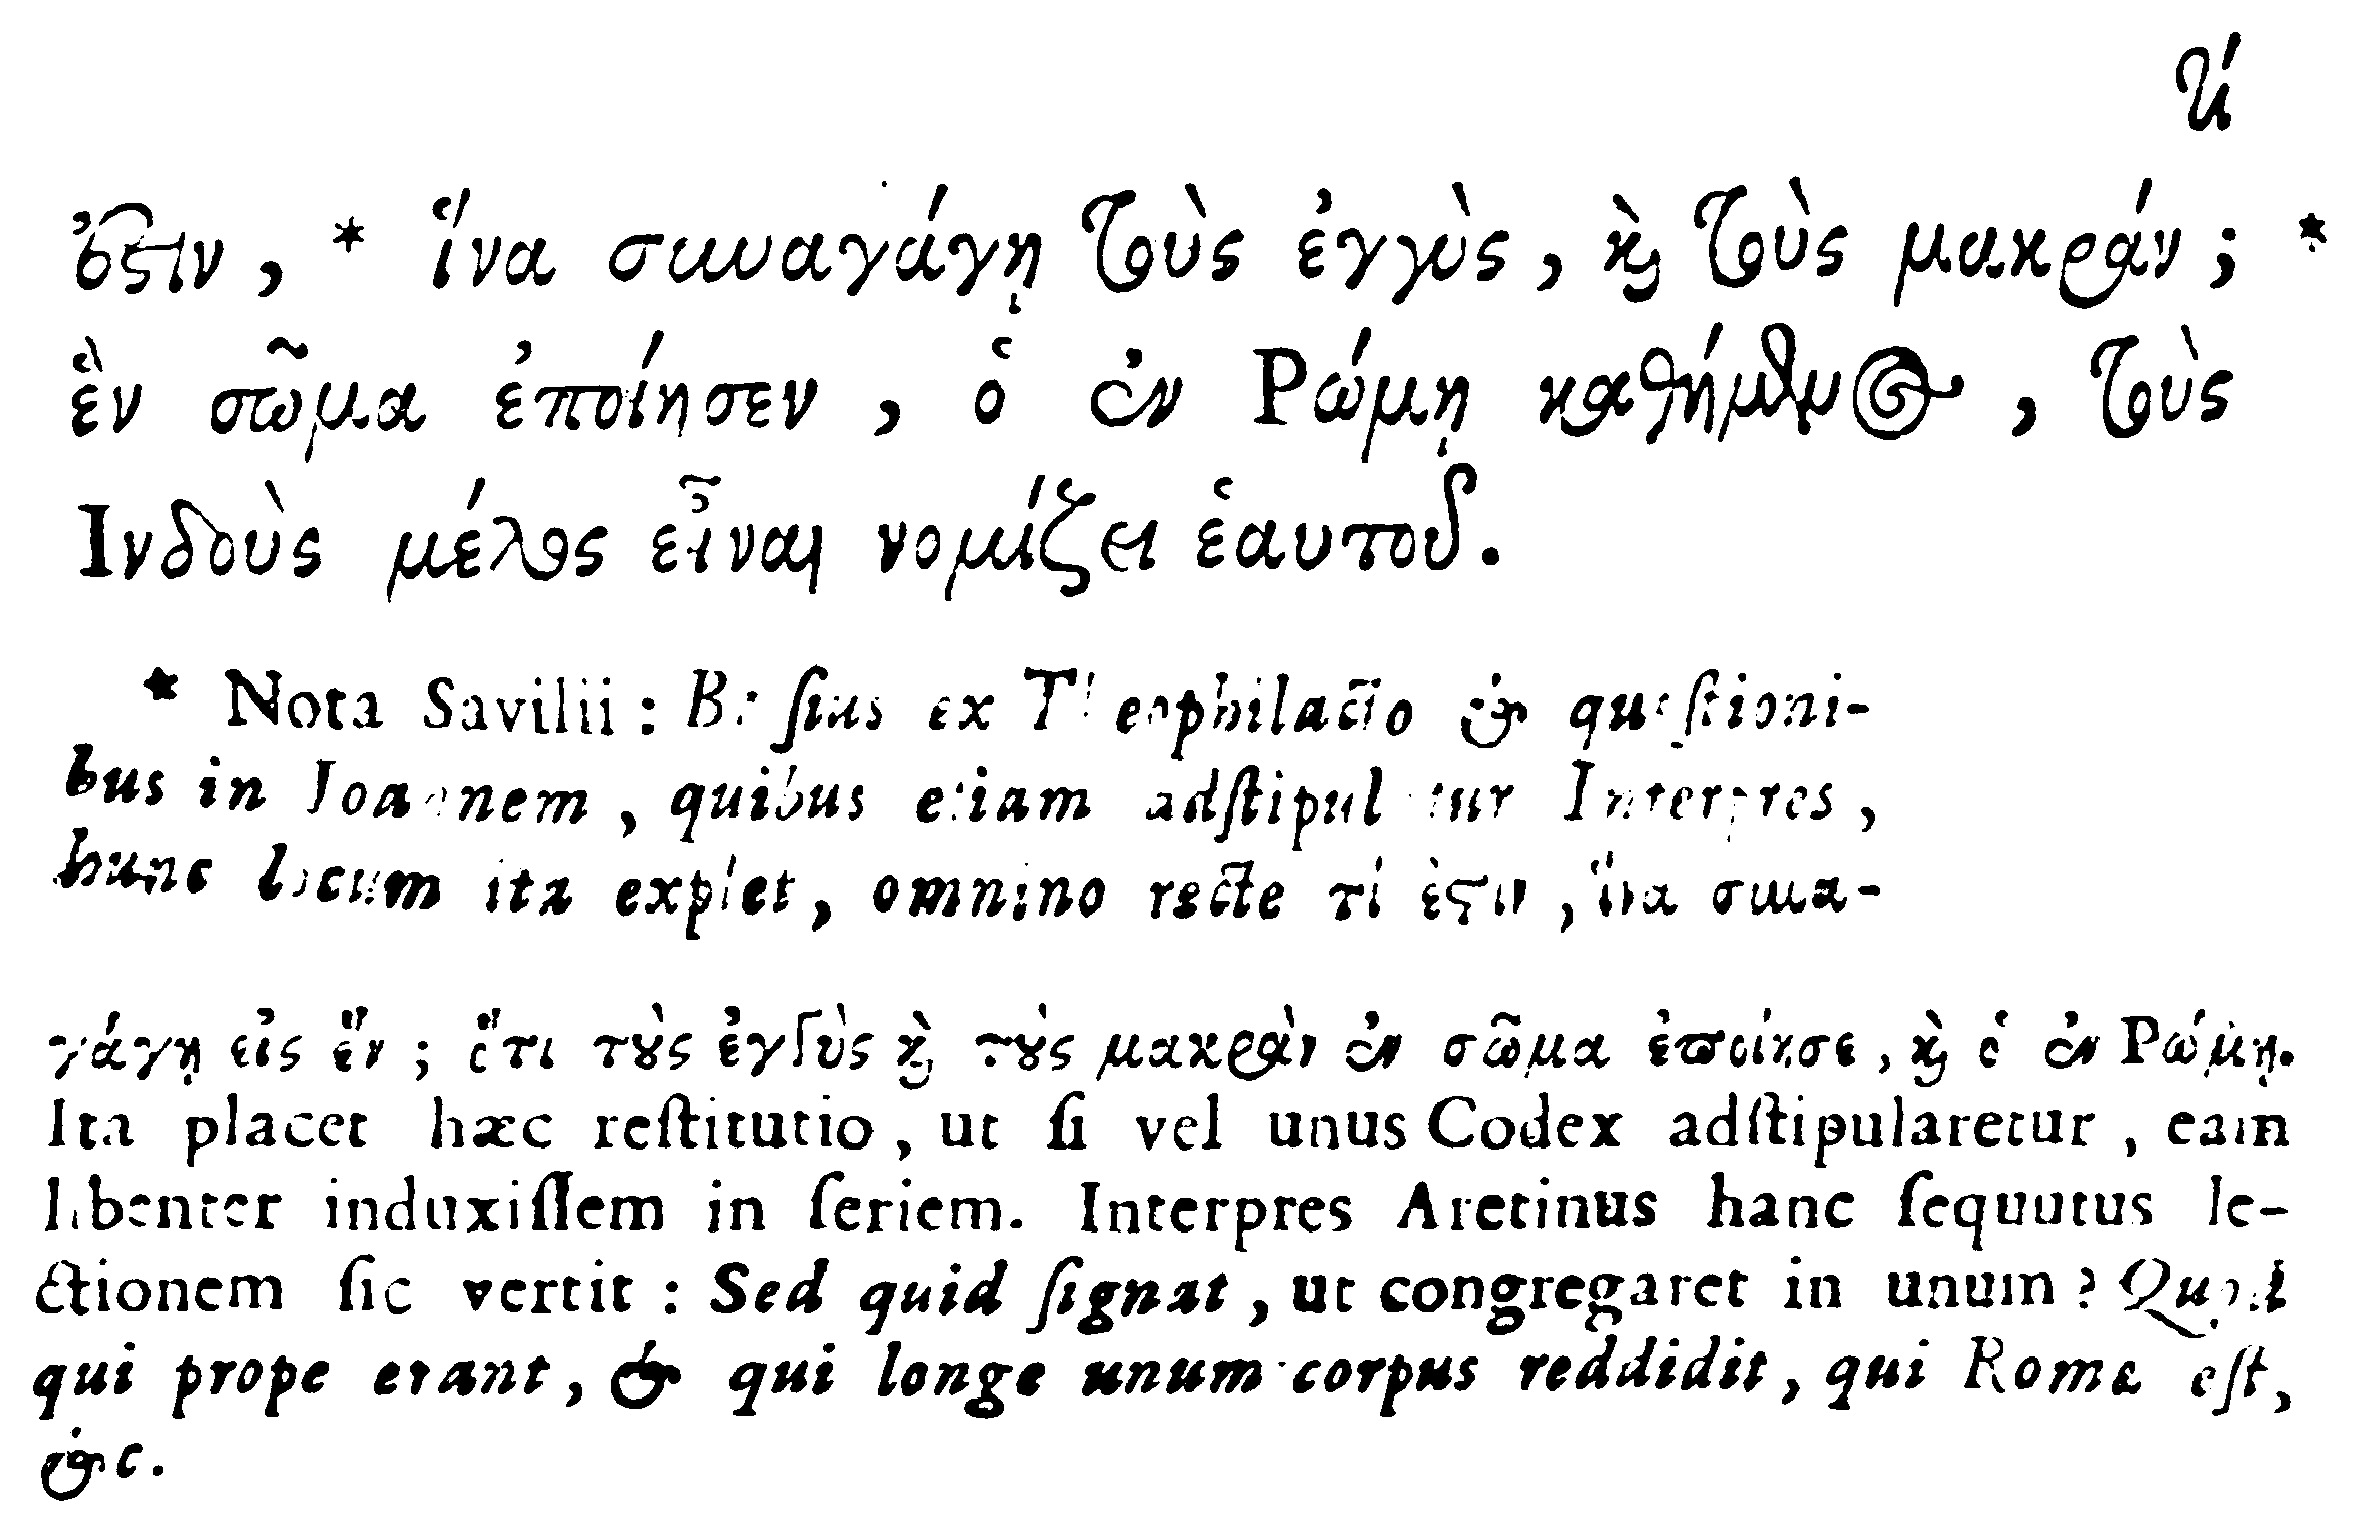 τί
ἐστιν, * ἵνα συναγάγῃ τοὺς ἐγγὺς, καὶ τοὺς μακράν; *
ἓν σῶμα ἐποίησεν, ὁ ἐν Ρώμῃ καθήμενος, τοὺς
Ινδοὺς μέλος εἶναι νομίζει ἑαυτοῦ.
* Nota Savilii: Boiſius ex Theophilacto & quæſtioni-
bus in Joannem, quibus etiam adſtipulatur Interpres,
hunc locum ita explet, omnino recte τί ἐστιν, ἵνα συνα-
γάγῃ εἰς ἕν; ὅτι τοὺς ἐγγὺς καὶ τοὺς μακρὰν ἐν σῶμα ἐποίησε, καὶ ὁ ἐν Ρώμῃ.
Ita placet hæc reſtitutio, ut ſi vel unus Codex adſtipularetur, eam
libenter induxiſſem in ſeriem. Interpres Aretinus hanc ſequutus le-
ctionem ſic vertit: Sed quid ſignat, ut congregaret in unum? Quod
qui prope erant, & qui longe unum corpus reddidit, qui Romæ eſt,
&c.